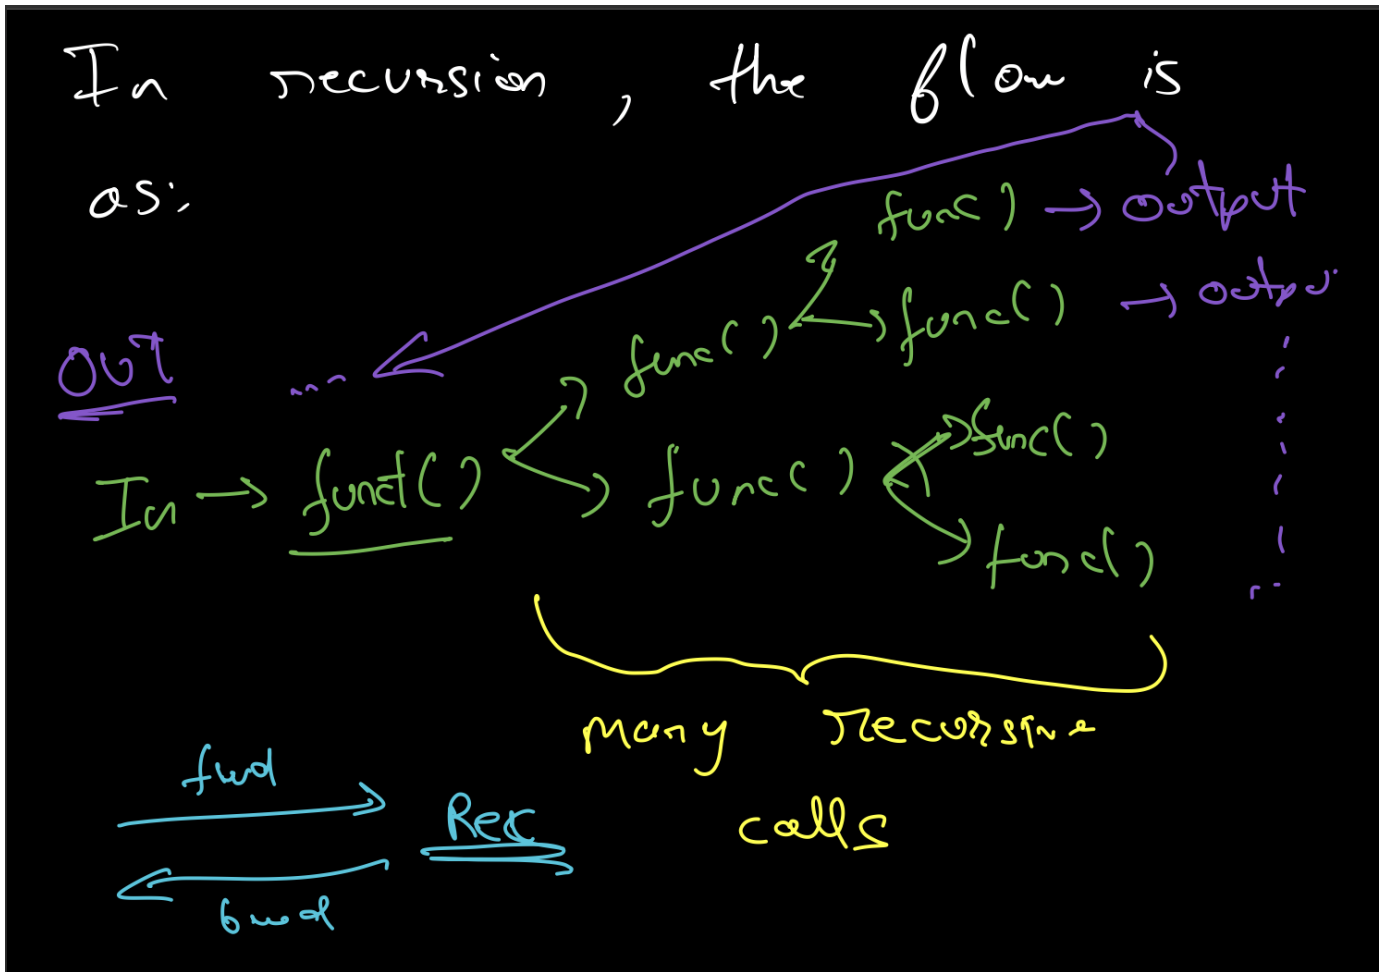 In recursion, the flow is
as:
func() → output
func() → outpu
func()
OUT ...
func()
In → funct() func()
func()
many recursive
calls
fwd
Rec
bwd